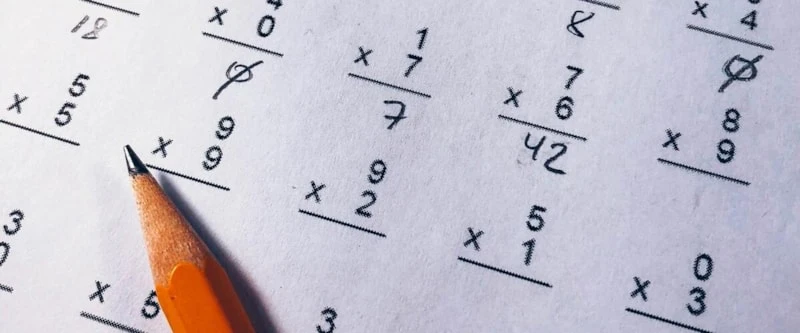 18
x 0
0
1
x 7
7
8
7
x 6
42
x 4
0
5
x 5
9
x 9
9
x 2
5
x 1
8
x 9
0
x 3
3
x 5
3